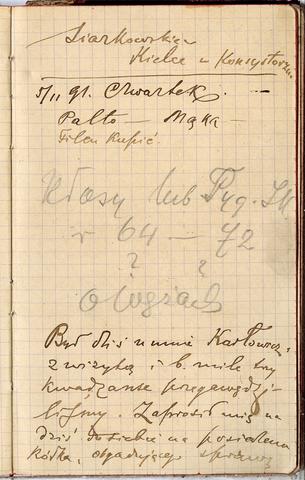 Siarkowskie
Kielce u Konsystorzu.
5/II 91. Czwartek. —
Palto — Mąka —
Filcu kupić.
Kłosy lub Tyg. Il.
r 64 — 72
? ?
o Węgrach
Był dziś u mnie Karłowicz
z wizytą i b. mile trzy
kwadranse przegawędzi-
liśmy. Zaprosił mię na
dziś do siebie na posiedzenie
kółka,